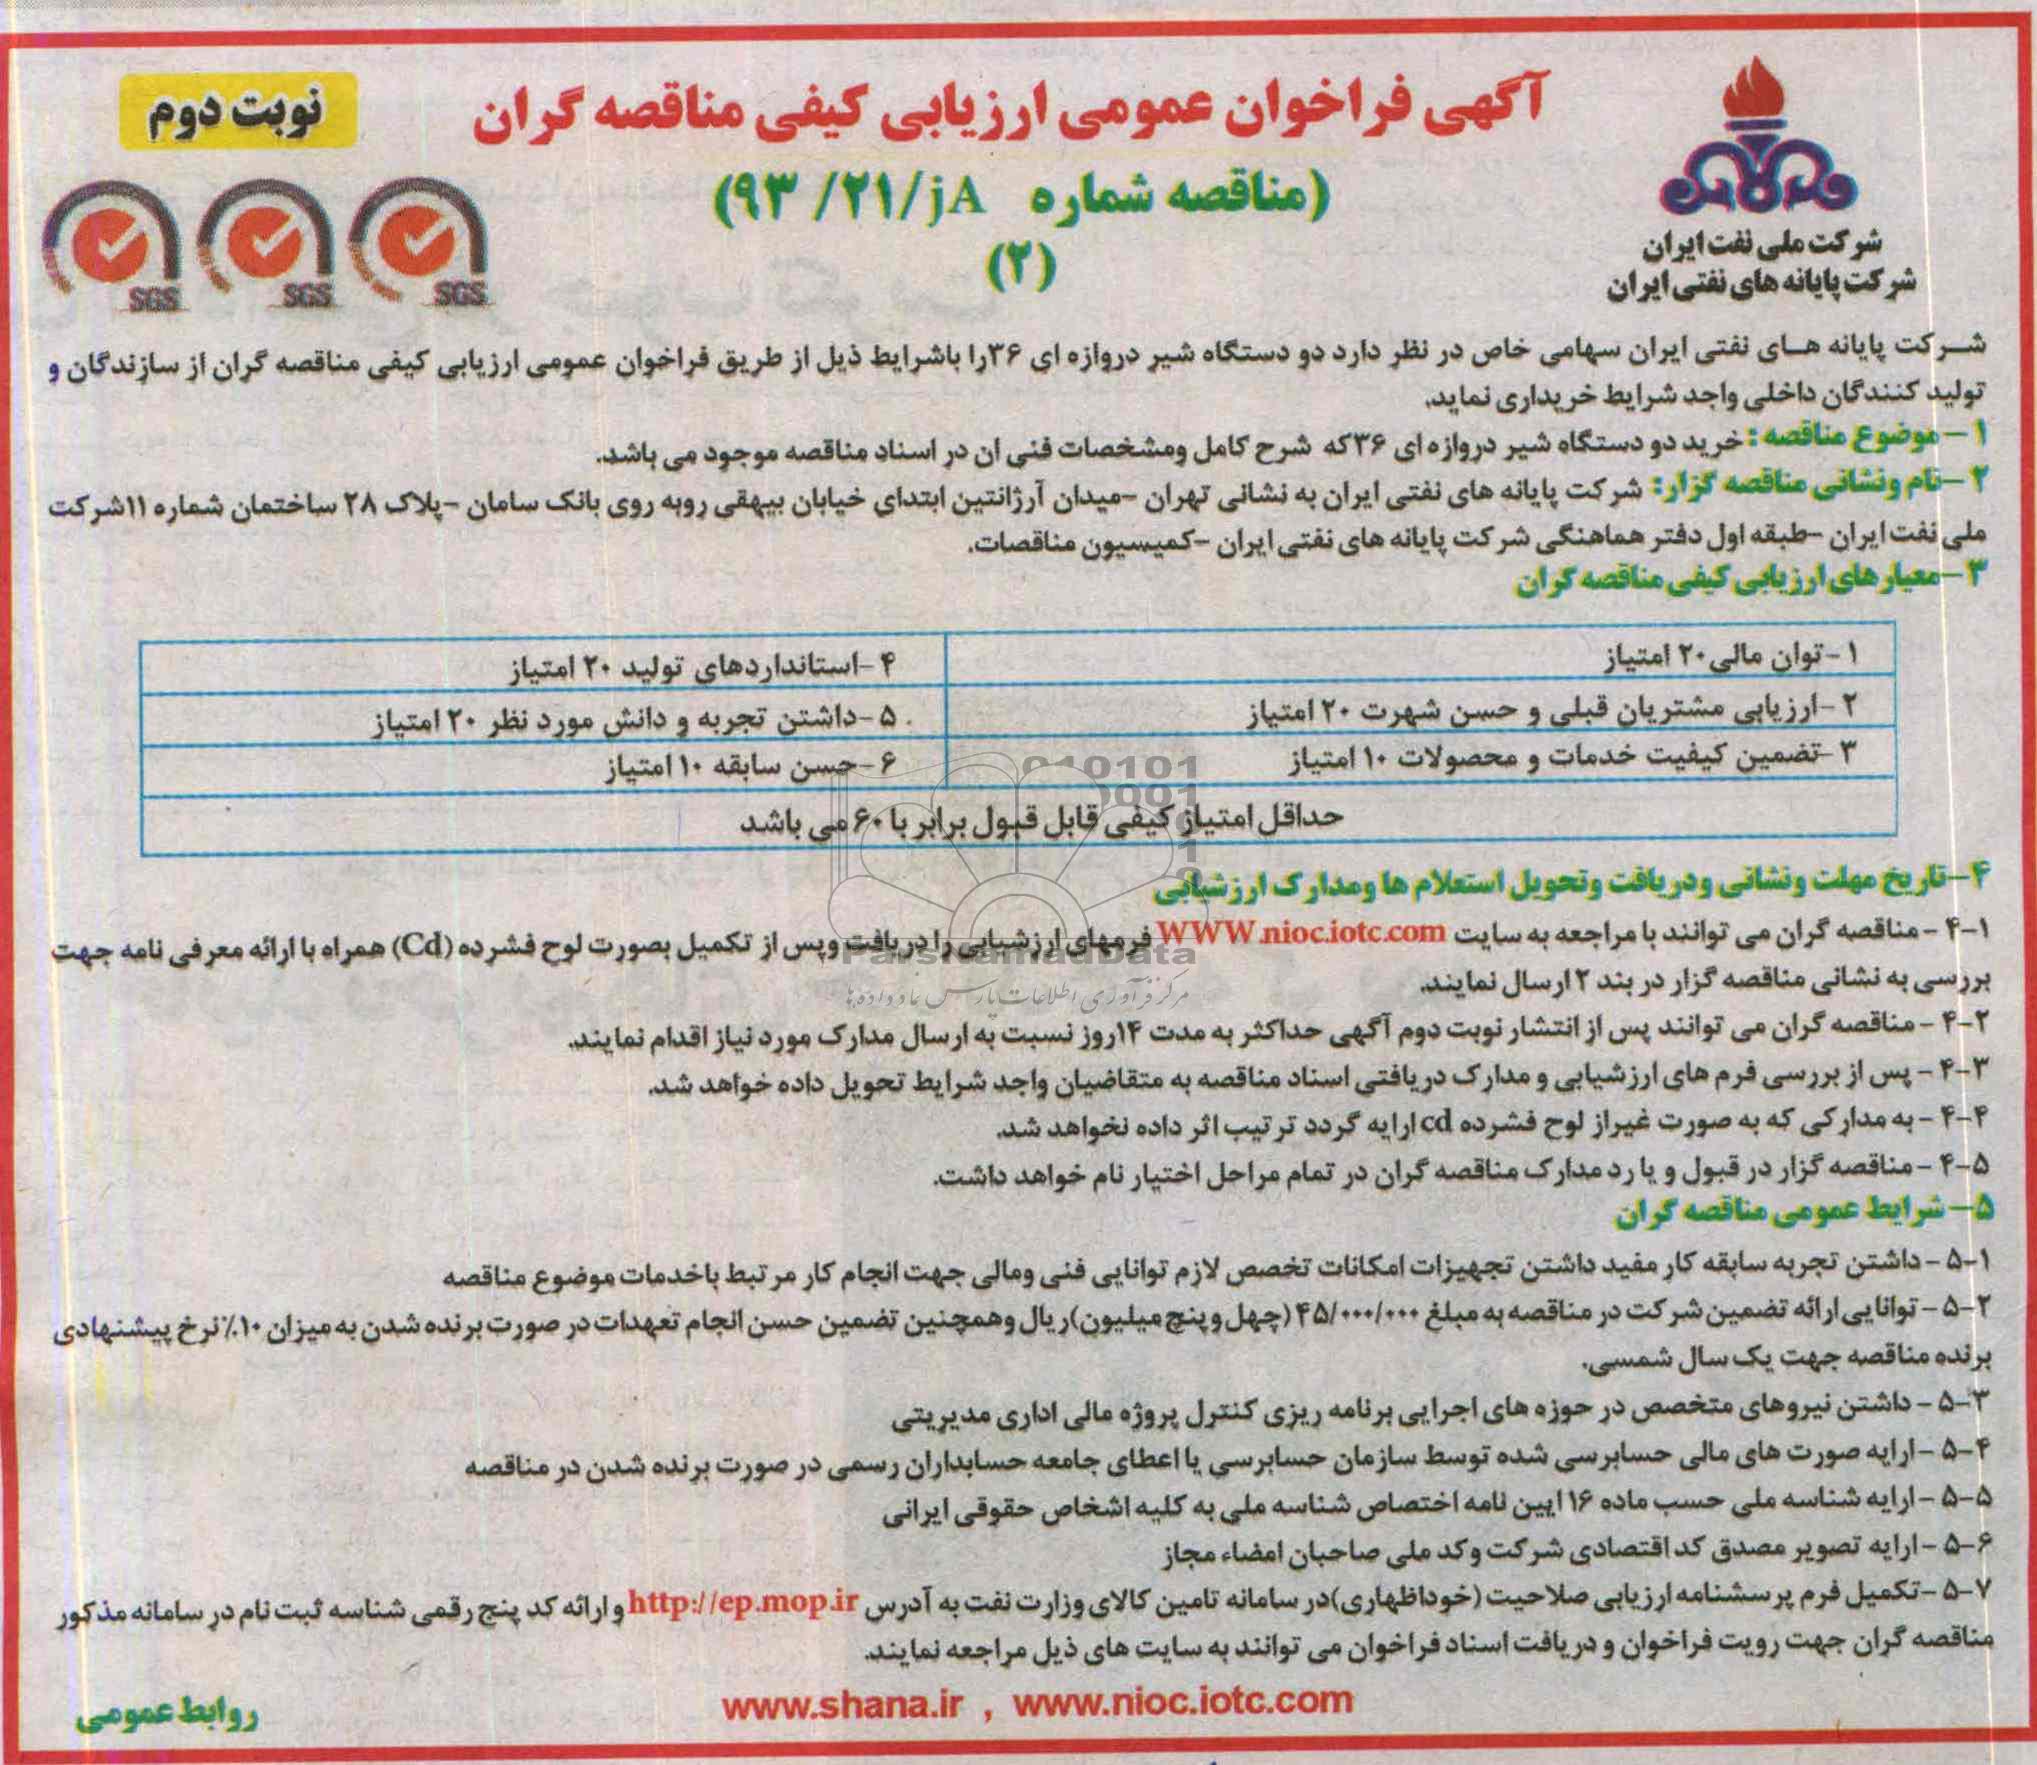 آگهی فراخوان عمومی ارزیابی کیفی مناقصه گران
نوبت دوم
(مناقصه شماره 93/21/jA)
(2)
شرکت ملی نفت ایران
شرکت پایانه های نفتی ایران
SGS SGS SGS
شرکت پایانه هـای نفتی ایران سهامی خاص در نظر دارد دو دستگاه شیر دروازه ای ۳۶را باشرایط ذیل از طریق فراخوان عمومی ارزیابی کیفی مناقصه گران از سازندگان و
تولید کنندگان داخلی واجد شرایط خریداری نماید.
۱ – موضوع مناقصه : خرید دو دستگاه شیر دروازه ای ۳۶که شرح کامل ومشخصات فنی ان در اسناد مناقصه موجود می باشد.
۲ –نام ونشانی مناقصه گزار: شرکت پایانه های نفتی ایران به نشانی تهران –میدان آرژانتین ابتدای خیابان بیهقی روبه روی بانک سامان –پلاک ۲۸ ساختمان شماره ۱۱شرکت
ملی نفت ایران –طبقه اول دفتر هماهنگی شرکت پایانه های نفتی ایران –کمیسیون مناقصات.
۳ –معیارهای ارزیابی کیفی مناقصه گران
۱ -توان مالی ۲۰ امتیاز
۴ -استانداردهای تولید ۲۰ امتیاز
۲ -ارزیابی مشتریان قبلی و حسن شهرت ۲۰ امتیاز
۵ -داشتن تجربه و دانش مورد نظر ۲۰ امتیاز
۳ -تضمین کیفیت خدمات و محصولات ۱۰ امتیاز
۶ -حسن سابقه ۱۰ امتیاز
حداقل امتیاز کیفی قابل قبول برابر با ۶۰ می باشد
۴–تاریخ مهلت ونشانی ودریافت وتحویل استعلام ها ومدارک ارزشیابی
۴-۱ – مناقصه گران می توانند با مراجعه به سایت WWW.nioc.iotc.com فرمهای ارزشیابی را دریافت وپس از تکمیل بصورت لوح فشرده (Cd) همراه با ارائه معرفی نامه جهت
بررسی به نشانی مناقصه گزار در بند ۲ ارسال نمایند.
ParsNamadData
مرکز فرآوری اطلاعات پارس نماد داده ها
۴-۲ – مناقصه گران می توانند پس از انتشار نوبت دوم آگهی حداکثر به مدت ۱۴روز نسبت به ارسال مدارک مورد نیاز اقدام نمایند.
۴-۳ – پس از بررسی فرم های ارزشیابی و مدارک دریافتی اسناد مناقصه به متقاضیان واجد شرایط تحویل داده خواهد شد.
۴-۴ – به مدارکی که به صورت غیراز لوح فشرده cd ارایه گردد ترتیب اثر داده نخواهد شد.
۴-۵ – مناقصه گزار در قبول و یا رد مدارک مناقصه گران در تمام مراحل اختیار نام خواهد داشت.
۵– شرایط عمومی مناقصه گران
۵-۱ – داشتن تجربه سابقه کار مفید داشتن تجهیزات امکانات تخصص لازم توانایی فنی ومالی جهت انجام کار مرتبط باخدمات موضوع مناقصه
۵-۲ – توانایی ارائه تضمین شرکت در مناقصه به مبلغ ۴۵/۰۰۰/۰۰۰ (چهل و پنج میلیون)ریال وهمچنین تضمین حسن انجام تعهدات در صورت برنده شدن به میزان ۱۰٪ نرخ پیشنهادی
برنده مناقصه جهت یک سال شمسی.
۵-۳ – داشتن نیروهای متخصص در حوزه های اجرایی برنامه ریزی کنترل پروژه مالی اداری مدیریتی
۵-۴ – ارایه صورت های مالی حسابرسی شده توسط سازمان حسابرسی یا اعطای جامعه حسابداران رسمی در صورت برنده شدن در مناقصه
۵-۵ – ارایه شناسه ملی حسب ماده ۱۶ ایین نامه اختصاص شناسه ملی به کلیه اشخاص حقوقی ایرانی
۵-۶ – ارایه تصویر مصدق کد اقتصادی شرکت وکد ملی صاحبان امضاء مجاز
۵-۷ –تکمیل فرم پرسشنامه ارزیابی صلاحیت (خوداظهاری)در سامانه تامین کالای وزارت نفت به آدرس http://ep.mop.ir و ارائه کد پنج رقمی شناسه ثبت نام در سامانه مذکور
مناقصه گران جهت رویت فراخوان و دریافت اسناد فراخوان می توانند به سایت های ذیل مراجعه نمایند.
www.shana.ir , www.nioc.iotc.com
روابط عمومی